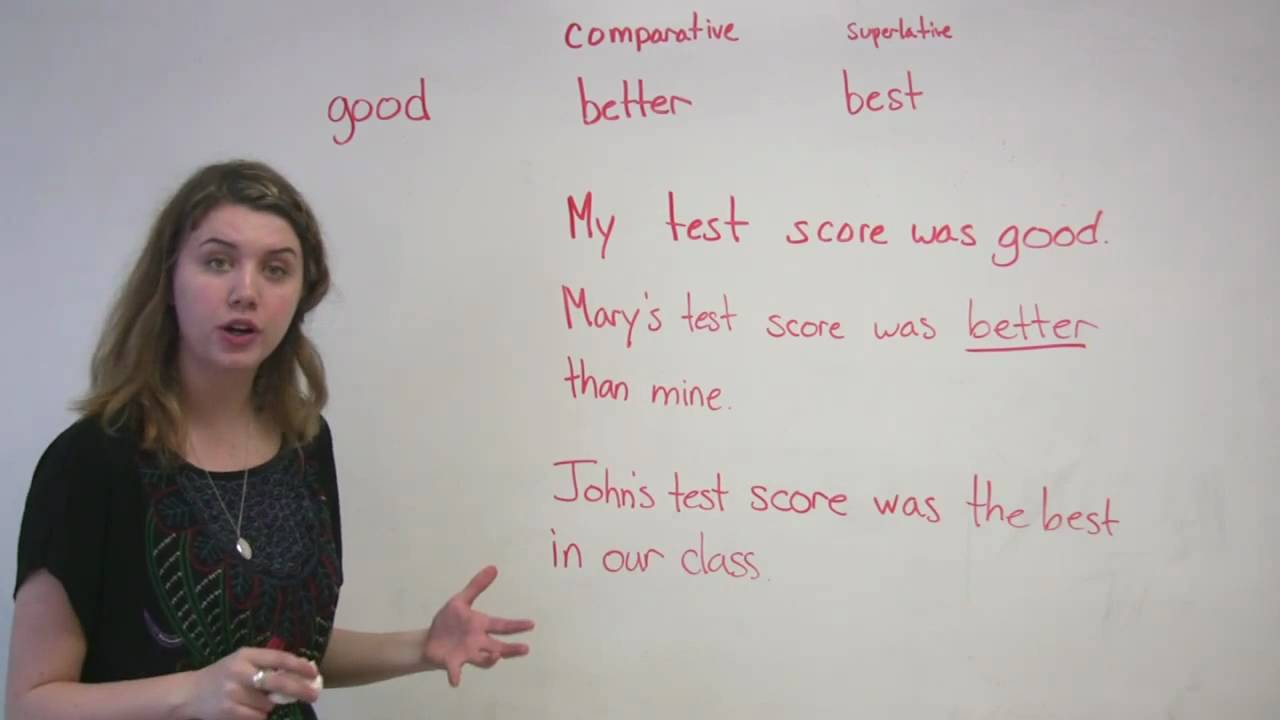 comparative superlative
good better best
My test score was good.
Mary's test score was better
than mine.
John's test score was the best
in our class.